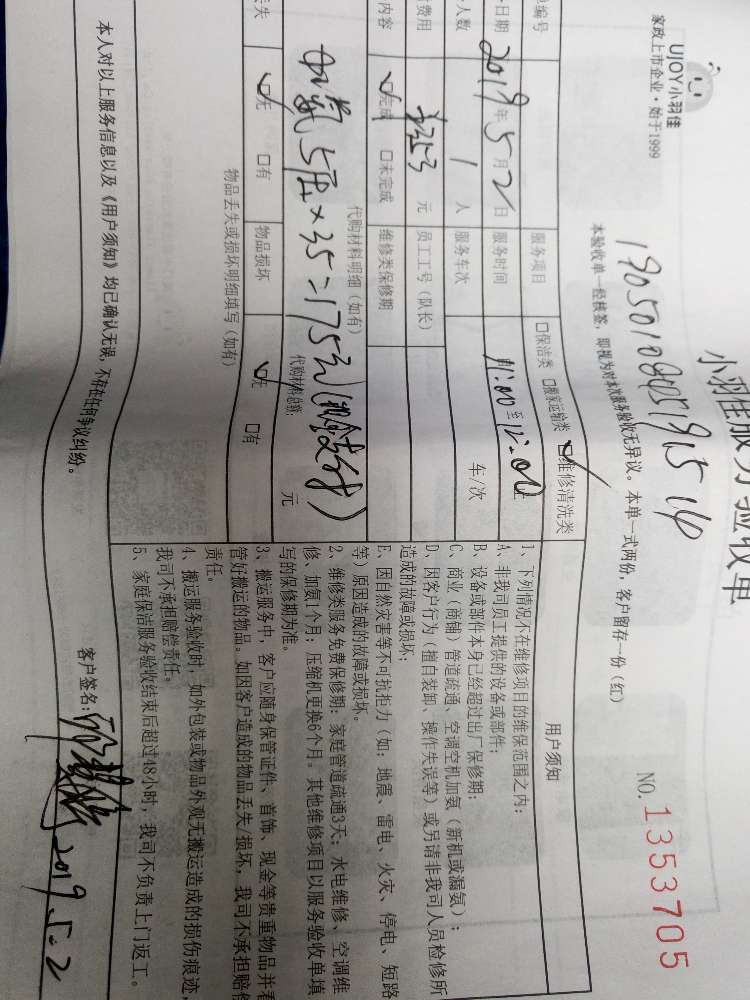 UJOY小羽佳
家政上市企业·始于1999
小羽佳服务验收单
NO. 1353705
本验收单一经核签，即视为对本次服务验收无异议。本单一式两份，客户留存一份（红）
单编号
服务项目 □保洁类 □搬家运输类 ☑维修清洗类
日期 2019年5月2日 服务时间 11:00至12:00
人数 1人 服务车次 车/次
费用 元 员工工号（队长）
内容 ☑完成 □未完成 维修类保修期
代购材料明细（如有）
加氨 5压×35=175元
代购材料总额 元
丢失 ☑无 □有 物品损坏 ☑无 □有
物品丢失或损坏明细填写（如有）
用户须知
1、下列情况不在维修项目的维保范围之内：
A、非我司员工提供的设备或部件；
B、设备或部件本身已经超过出厂保修期；
C、商业（商铺）管道疏通、空调空机加氨（新机或漏氨）；
D、因客户行为（擅自装卸、操作失误等）或另请非我司人员检修所
造成的故障或损坏；
E、因自然灾害等不可抗拒力（如：地震、雷电、火灾、停电、短路
等）原因造成的故障或损坏。
2、维修类服务免费保修期：家庭管道疏通3天；水电维修、空调维
修、加氨1个月；压缩机更换6个月。其他维修项目以服务验收单填
写的保修期为准。
3、搬运服务中，客户应随身保管证件、首饰、现金等贵重物品并看
管好搬运的物品。如因客户造成的物品丢失/损坏，我司不承担赔偿
责任。
4、搬运服务验收时，如外包装或物品外观无搬运造成的损伤痕迹，
我司不承担赔偿责任。
5、家庭保洁服务验收结束后超过48小时，我司不负责上门返工。
本人对以上服务信息以及《用户须知》均已确认无误，不存在任何争议纠纷。
客户签名： 2019.5.2